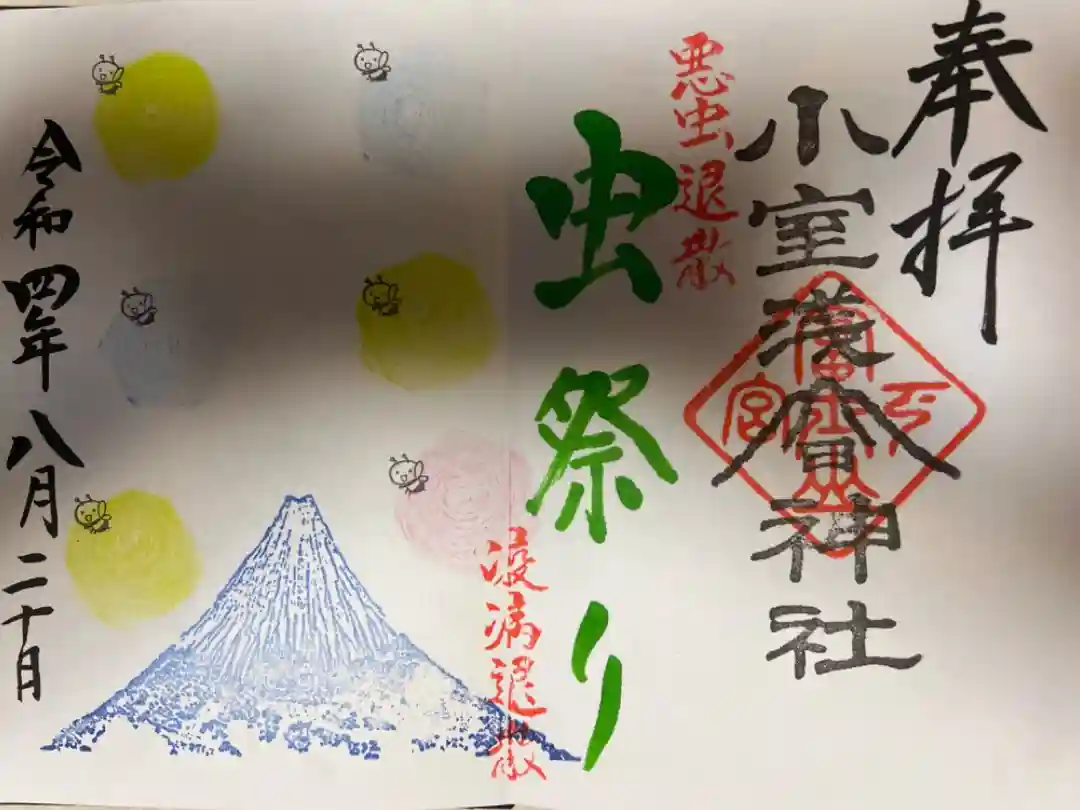 奉拝
小室浅間神社
悪虫退散
虫祭り
疫病退散
令和四年八月二十日